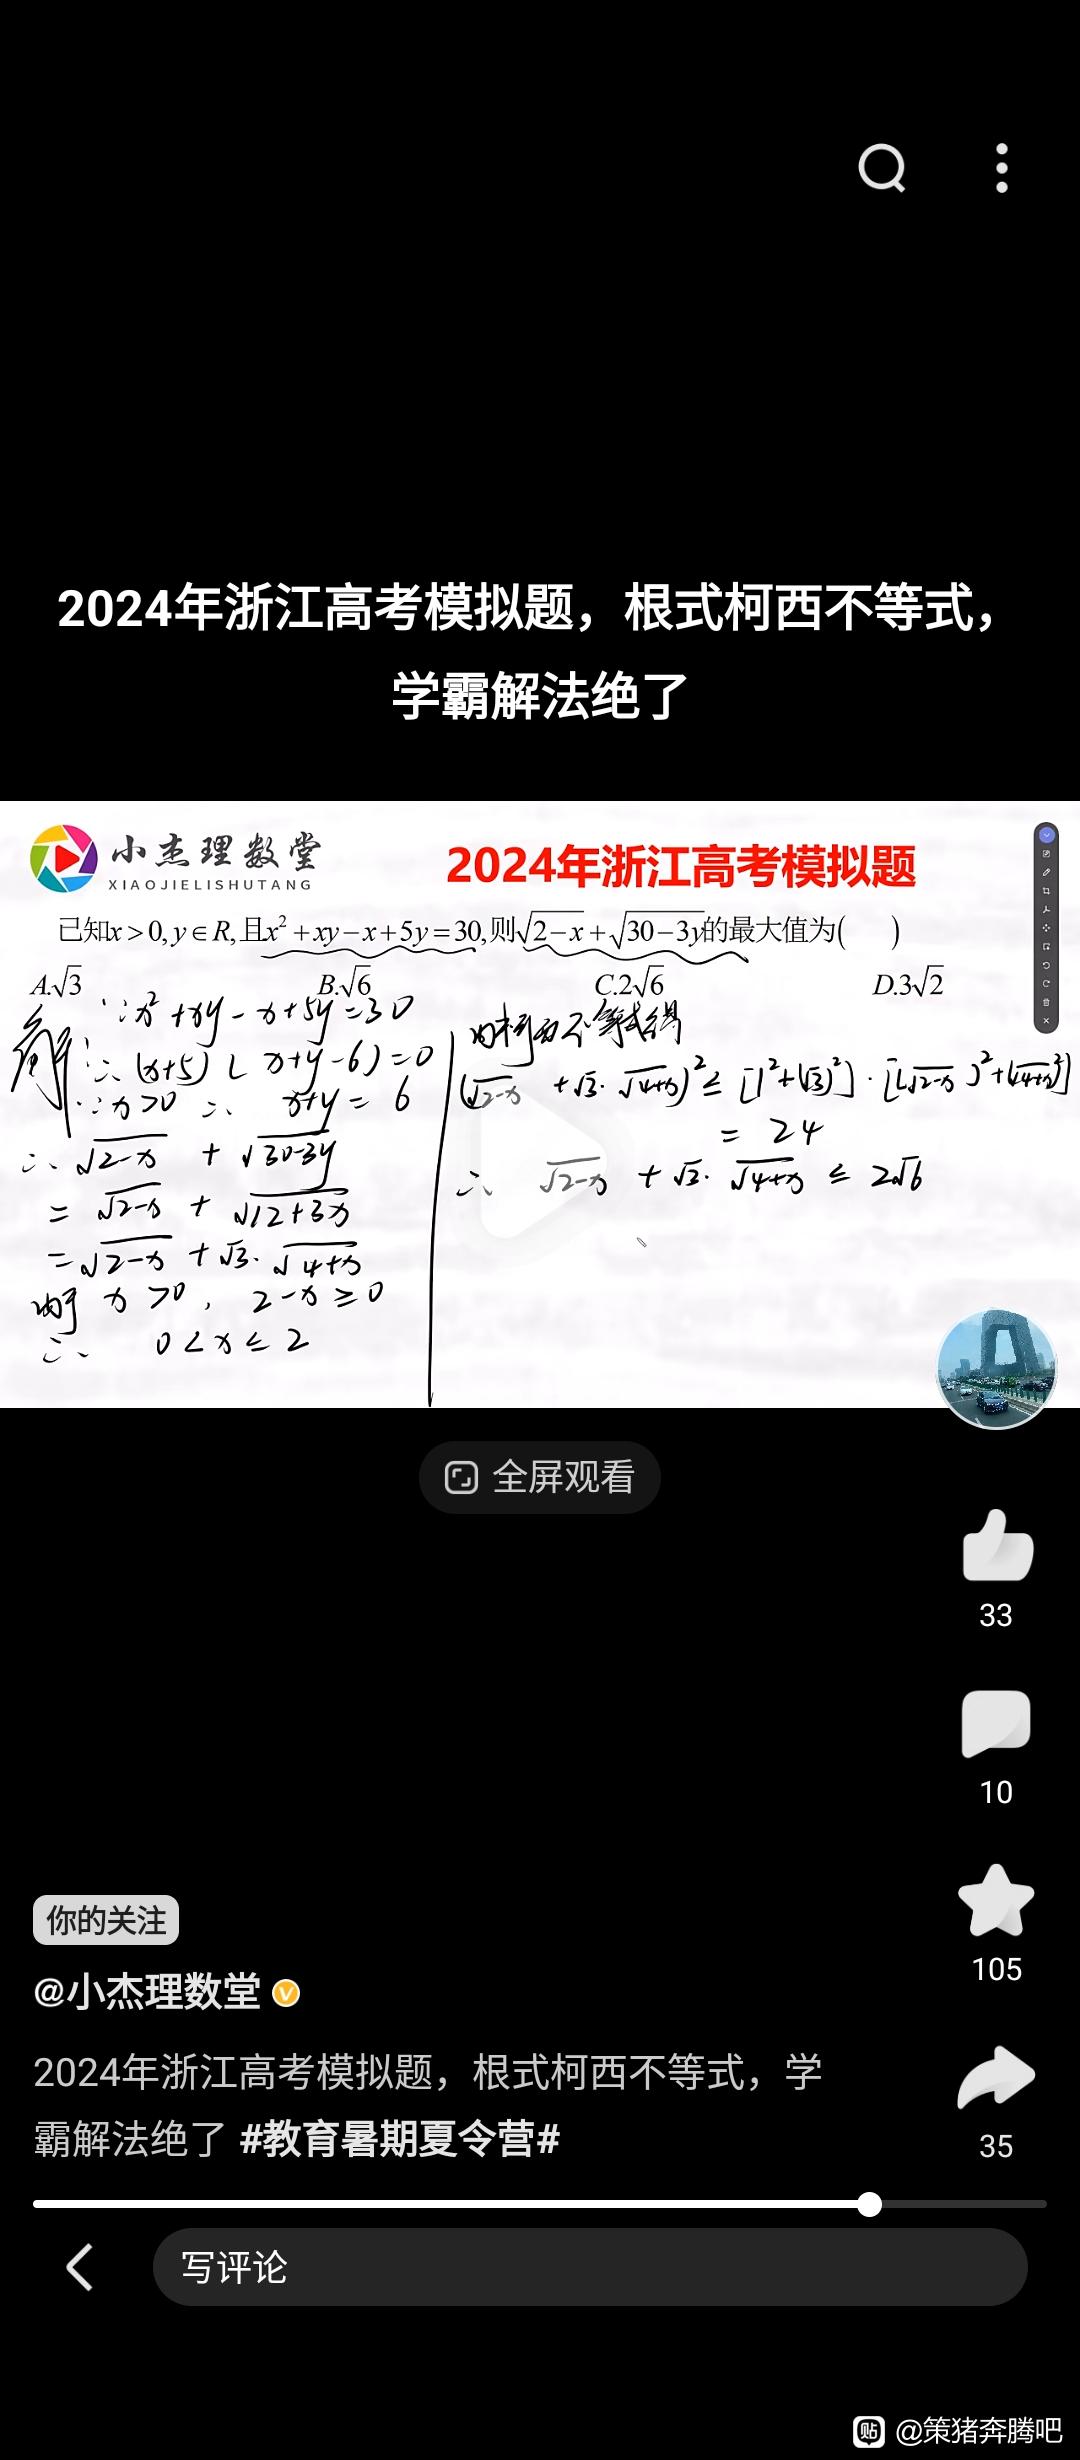 2024年浙江高考模拟题，根式柯西不等式，
学霸解法绝了
小杰理数堂
XIAOJIELISHUTANG
2024年浙江高考模拟题
已知x>0,y∈R,且x²+xy-x+5y=30,则√2-x+√30-3y的最大值为(　)
A.√3 B.√6 C.2√6 D.3√2
解 ∵x²+xy-x+5y=30
∴(x+5)(x+y-6)=0
∵x>0 ∴ x+y=6
∴√2-x + √30-3y
= √2-x + √12+3x
=√2-x +√3·√4+x
由于 x>0, 2-x≥0
∴ 0<x≤2
由柯西不等式得
(√2-x +√3·√4+x)²≤[1²+(√3)²]·[(√2-x)²+(√4+x)²]
= 24
∴ √2-x +√3·√4+x ≤ 2√6
全屏观看
33
10
105
35
你的关注
@小杰理数堂
2024年浙江高考模拟题，根式柯西不等式，学
霸解法绝了 #教育暑期夏令营#
写评论
贴 @策猪奔腾吧